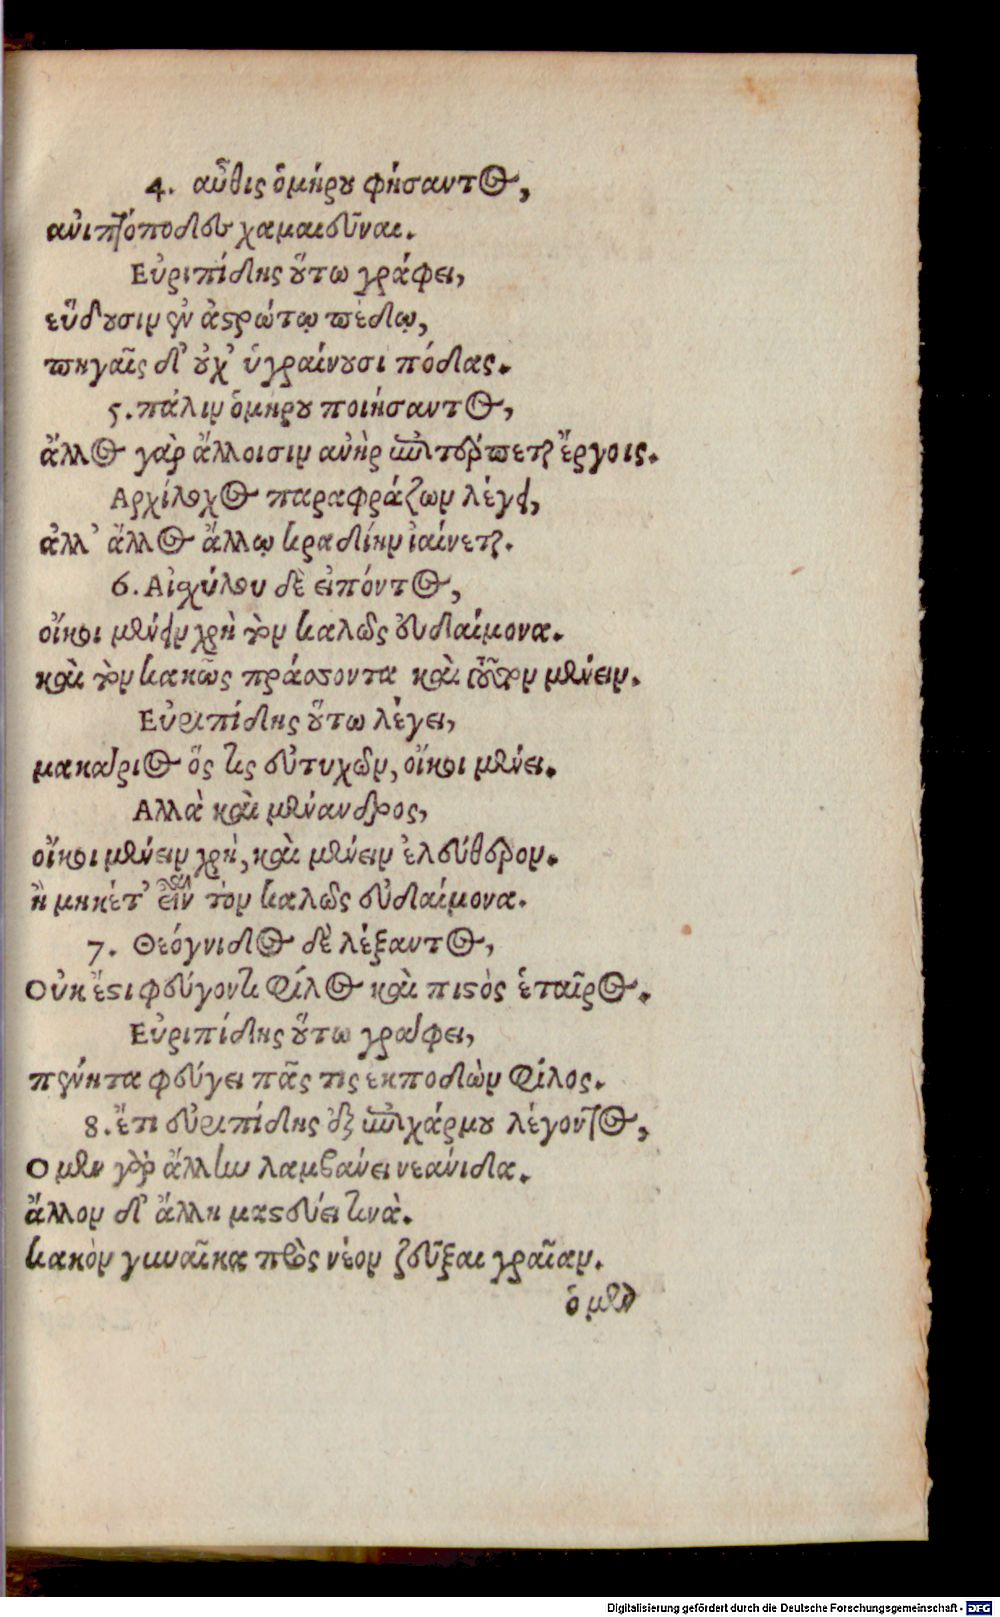 4. αὖθις ὁμήρου φήσαντος,
ἀνιπτόποδες χαμαιεῦναι.
Εὐριπίδης οὕτω γράφει,
εὕδουσιν ἐν ἀστρώτῳ πέδῳ,
πηγαῖς δ’ οὐχ’ ὑγραίνουσι πόδας.
5. πάλιν ὁμήρου ποιήσαντος,
ἄλλος γὰρ ἄλλοισιν ἀνὴρ ἐπιτέρπεται ἔργοις.
Αρχίλοχος παραφράζων λέγει,
ἀλλ’ ἄλλος ἄλλῳ κραδίην ἰαίνεται.
6. Αἰσχύλου δὲ εἰπόντος,
οἴκοι μένειν χρὴ τὸν καλῶς εὐδαίμονα.
καὶ τὸν κακῶς πράσσοντα καὶ τοῦτον μένειν.
Εὐριπίδης οὕτω λέγει,
μακάριος ὅς τις εὐτυχῶν, οἴκοι μένει.
Αλλὰ καὶ μένανδρος,
οἴκοι μένειν χρή, καὶ μένειν ἐλεύθερον.
ἢ μηκέτ’ εἶναι τὸν καλῶς εὐδαίμονα.
7. Θεόγνιδος δὲ λέξαντος,
Οὐκ ἔστι φεύγοντι φίλος καὶ πιστὸς ἑταῖρος.
Εὐριπίδης οὕτω γράφει,
πένητα φεύγει πᾶς τις ἐκποδὼν φίλος.
8. ἔτι εὐριπίδης ἐξ ἐπιχάρμου λέγοντος,
Ο μὲν γὰρ ἄλλην λαμβάνει νεάνιδα.
ἄλλον δ’ ἄλλη μαστεύει τινὰ.
κακὸν γυναῖκα πρὸς νέον ζεῦξαι γραῖαν.
ὁ μὲν
Digitalisierung gefördert durch die Deutsche Forschungsgemeinschaft - DFG